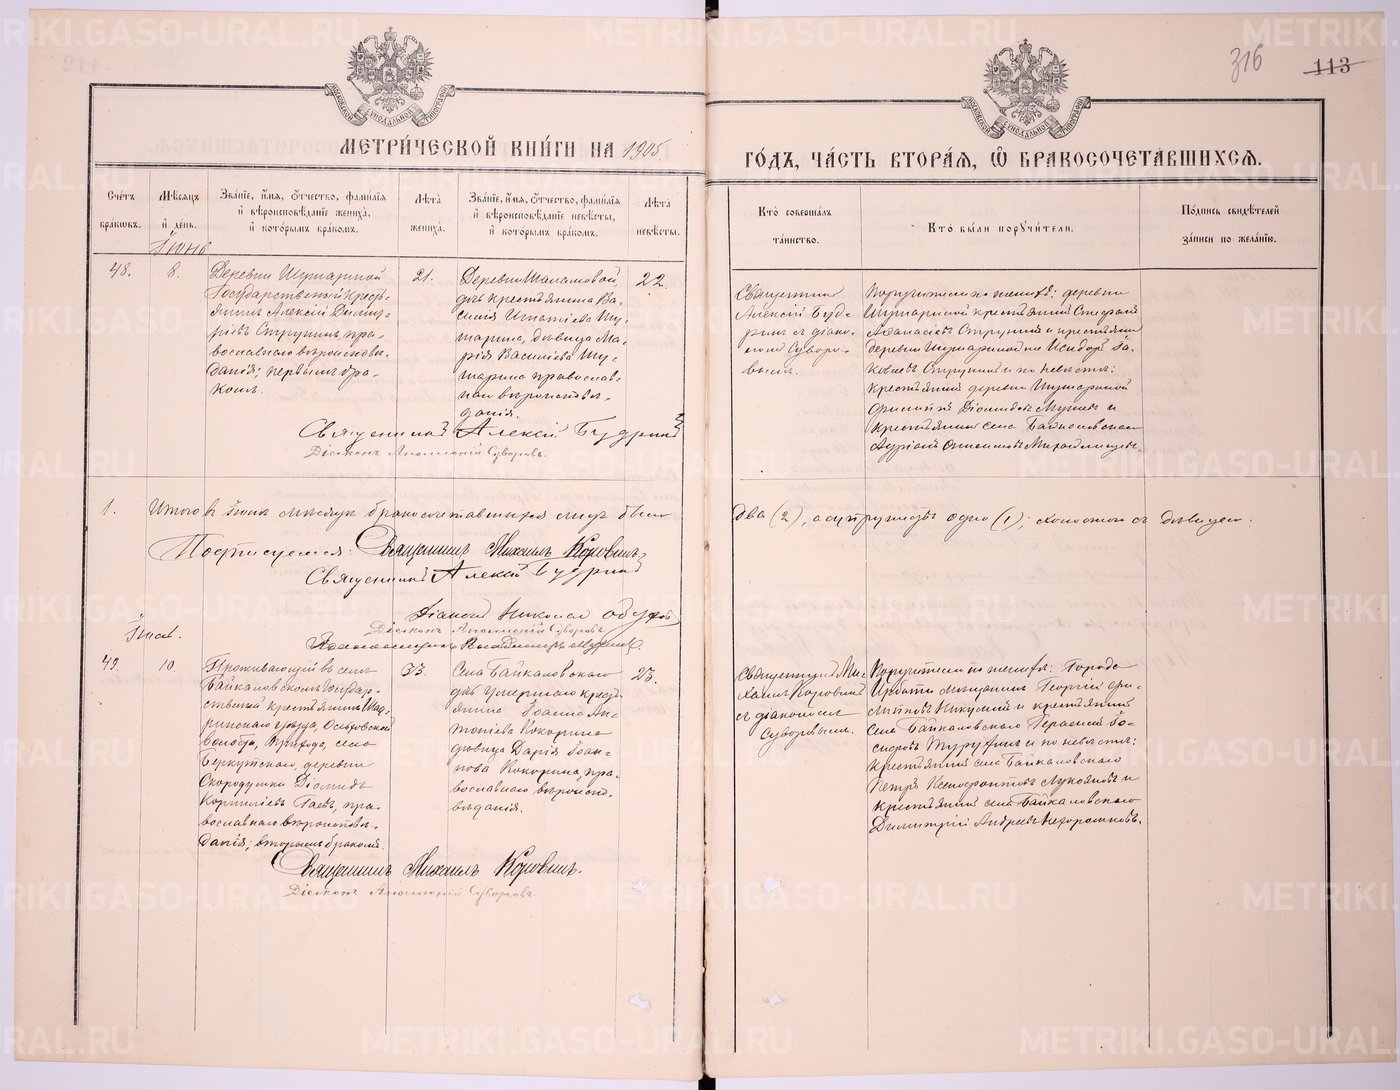 316
113
МОСКОВСКОЙ СѴНОДАЛЬНОЙ ТИПОГРАФІИ
МОСКОВСКОЙ СѴНОДАЛЬНОЙ ТИПОГРАФІИ
МЕТРИ́ЧЕСКОЙ КНИ́ГИ НА 1905
ГО́ДЪ, ЧА́СТЬ ВТОРА́Я, Ѡ҆ БРАКОСОЧЕТА́ВШИХСЯ.
Сче́тъ бра́кѡвъ.
Мѣ́сяцъ и҆ де́нь.
Зва́нїе, и҆́мя, ѻ҆́тчество, фамı́лїя
и҆ вѣроисповѣ́данїе жениха̀,
и҆ кото́рымъ бра́комъ.
Лѣ́та жениха̀.
Зва́нїе, и҆́мя, ѻ҆́тчество, фамı́лїя
и҆ вѣроисповѣ́данїе невѣ́сты,
и҆ кото́рымъ бра́комъ.
Лѣ́та невѣ́сты.
Кто̀ соверша́лъ та́инство.
Кто̀ бы́ли порꙋчи́тели.
По́дпись свидѣ́телей за́писи по жела́нїю.
Іюнь
48.
8.
Деревни Шушариной
Государственный кресть-
янинъ Алексій Димит-
ріевъ Струнинъ, пра-
вославнаго вѣроисповѣ-
данія; первымъ бра-
комъ.
21.
Деревни Шаламовой,
дочь крестьянина Ва-
силія Игнатіева Шу-
шарина, дѣвица Ма-
рія Васильева Шу-
шарина православ-
наго вѣроисповѣ-
данія.
22.
Священникъ
Алексій Буд-
ринъ съ діако-
номъ Суворо-
вымъ.
Поручители по женихѣ: деревни
Шушариной крестьянинъ Стефанъ
Аѳанасіевъ Струнинъ и крестьянинъ
деревни Шушариной Исидоръ Іа-
ковлевъ Струнинъ и по невѣстѣ:
крестьянинъ деревни Шушариной
Діомидовъ и
крестьянинъ села Байкаловскаго
Священникъ Алексій Будринъ
Діаконъ Аполлоній Суворовъ.
1.
Итого въ Іюнѣ мѣсяцѣ бракосочетавшихся лицъ было
два (2), а супружествъ одно (1); холостой съ дѣвицею.
Подписуемся: Священникъ Михаилъ Коровинъ
Священникъ Алексій Будринъ
Діаконъ Николай
Діаконъ Аполлоній Суворовъ
Іюль.
49.
10
Проживающій въ селѣ
Байкаловскомъ Государ-
ственный крестьянинъ Шад-
ринскаго уѣзда,
волости, прихода, села
Беркутскаго, деревни
Скородумки Діомидъ
Корниліевъ Гаевъ, пра-
вославнаго вѣроисповѣ-
данія; вторымъ бракомъ.
33.
Села Байкаловскаго
дочь умершаго кресть-
янина Іоанна Ан-
тоніева Кокорина
дѣвица Дарія Іоан-
нова Кокорина, пра-
вославнаго вѣроиспо-
вѣданія.
23.
Священникъ Ми-
хаилъ Коровинъ
съ діакономъ
Суворовымъ.
Поручители по женихѣ: Города
Ирбита мѣщанинъ Георгій
и крестьянинъ
села Байкаловскаго Герасимъ
и по невѣстѣ:
крестьянинъ села Байкаловскаго
Петръ Ксенофонтовъ Лукояновъ и
крестьянинъ села Байкаловскаго
Димитрій Андреевъ
Священникъ Михаилъ Коровинъ.
Діаконъ Аполлоній Суворовъ.
METRIKI.GASO-URAL.RU